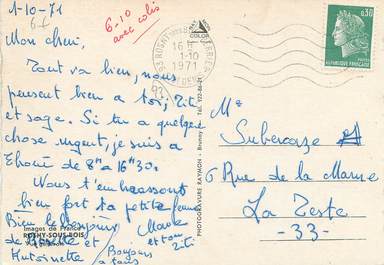 1-10-71
6-10
avec colis
Mon chéri,
Tout va bien, nous
pensent bien a toi, Titi
et sage. Si tu a quelque
chose urgent, je suis a
de 8ʰ a 16ʰ30.
Nous t'embrassons
bien fort ta petite femme
Marie
et ton Titi
Bien le Bonjour
de Ginette et
Antoinette
Bonjour
a tous
Images de France
ROSNY-SOUS-BOIS
COLOR
PHOTOGRAVURE RAYMON - Brunoy - Tél. 922-86-21
93 ROSNY
16 H
1-10
1971
0,30
POSTES
REPUBLIQUE FRANÇAISE
Mʳ
Subercaze
6 Rue de la Marne
La Teste
-33-